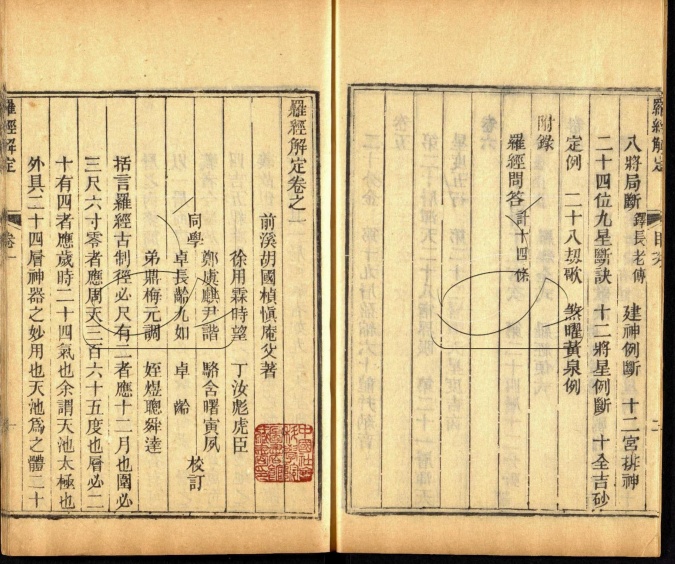 羅經解定 目錄
八將局斷 鐸長老傳 建神例斷 十二宮排神
二十四位九星斷訣 十二將星例斷 十全吉砂
定例 二十八刼歌 煞曜黃泉例
附錄
羅經問答計十四條
羅經解定卷之一
前溪胡國楨慎庵父著
徐用霖時望 丁汝彪虎臣
鄭虞麒尹諧 駱舍曙寅夙
同學 卓長齡九如 卓齡 校訂
弟鼎梅元調 姪煜聰舜達
括言羅經古制徑必尺有二者應十二月也圍必
三尺六寸零者應周天三百六十五度也層必二
十有四者應歲時二十四氣也余謂天池太極也
外具二十四層神器之妙用也天池爲之體二十
羅經解定 卷一